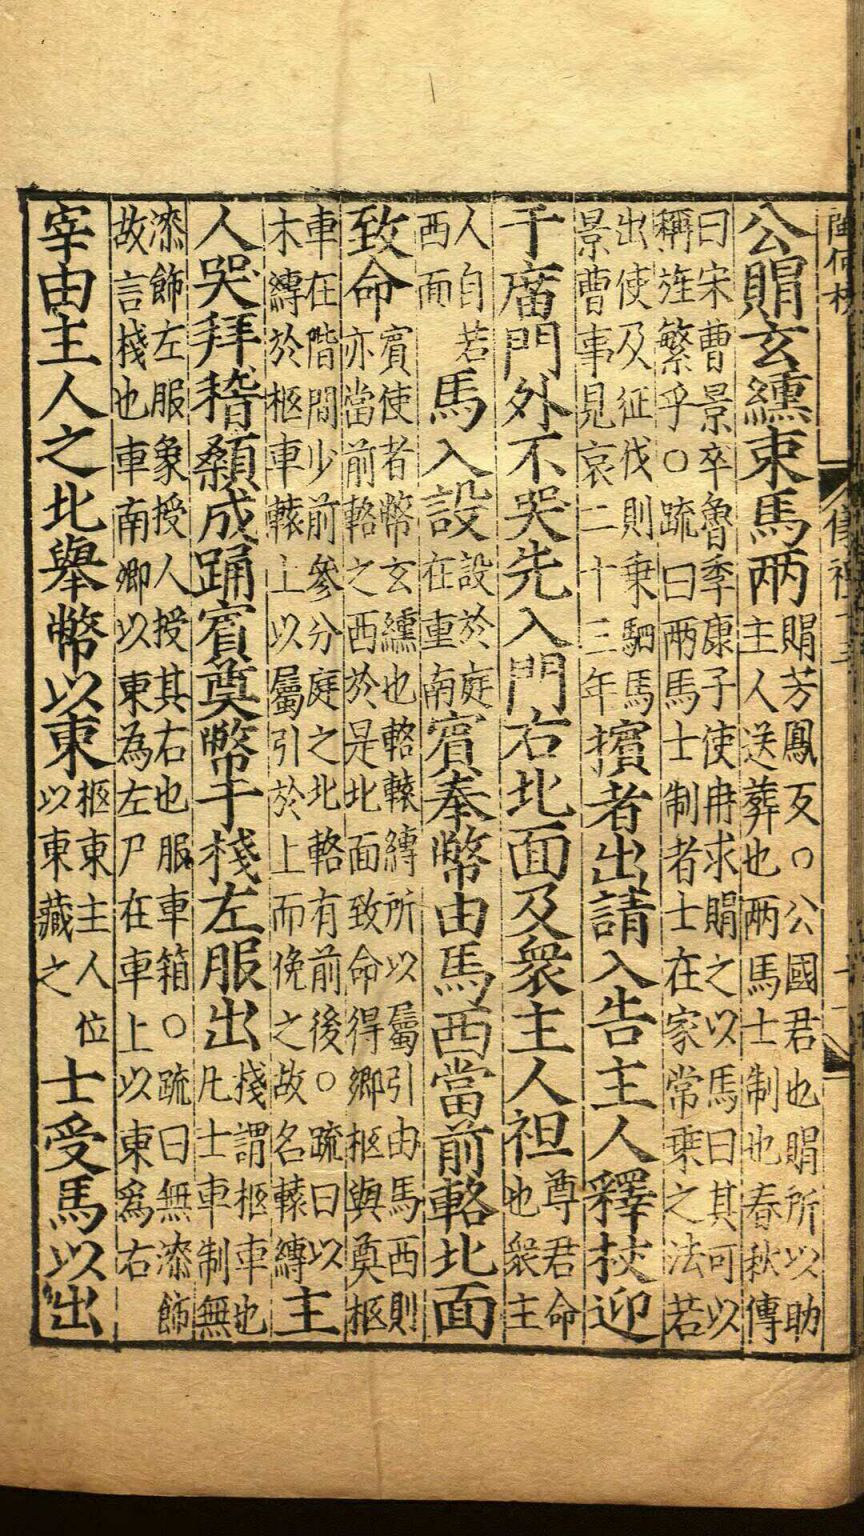 儀禮十三
公賵玄纁束馬兩
賵芳鳳反○公國君也賵所以助
主人送葬也兩馬士制也春秋傳
曰宋曹景卒魯季康子使冉求賵之以馬曰其可以
稱旌繁乎○疏曰兩馬士制者士在家常乗之法若
出使及征伐則乗駟馬
景曹事見哀二十三年
擯者出請入告主人釋杖迎
于廟門外不哭先入門右北面及衆主人袒
尊君命
也衆主
人自若
西面
馬入設
設於庭
在重南
賓奉幣由馬西當前輅北面
致命
賓使者幣玄纁也輅轅縛所以屬引由馬西則
亦當前輅之西於是北面致命得鄉柩與奠柩
車在階間少前參分庭之北輅有前後○疏曰以
木縛於柩車轅上以屬引於上而俛之故名轅縛
主
人哭拜稽顙成踊賓奠幣于棧左服出
棧謂柩車也
凡士車制無
漆飾左服象授人授其右也服車箱○疏曰無漆飾
故言棧也車南鄉以東為左尸在車上以東爲右
宰由主人之北舉幣以東
柩東主人位
以東藏之
士受馬以出